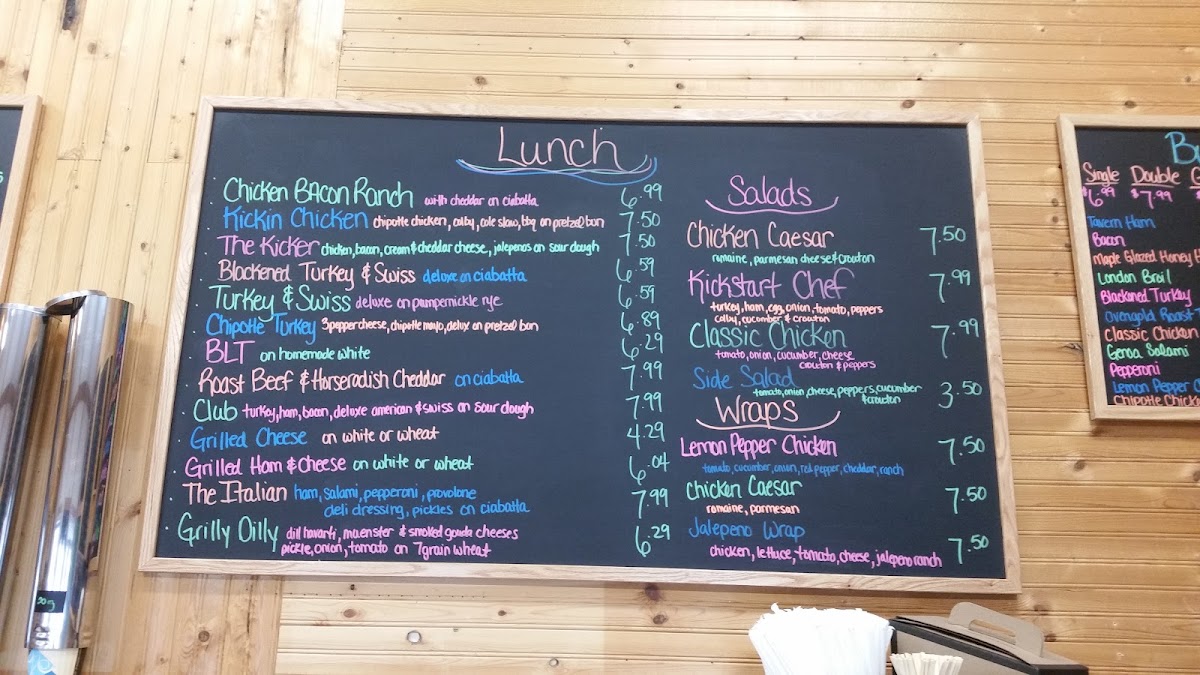 Lunch
Chicken BAcon Ranch with cheddar on ciabatta 6.99
Kickin Chicken chipotle chicken, colby, cole slaw, bbq on pretzel bun 7.50
The Kicker chicken, bacon, cream & cheddar cheese, jalepenos on sour dough 7.50
Blackened Turkey & Swiss deluxe on ciabatta 6.59
Turkey & Swiss deluxe on pumpernickle rye 6.59
Chipotle Turkey 3 pepper cheese, chipotle mayo, delux on pretzel bun 6.89
BLT on homemade white 6.29
Roast Beef & Horseradish Cheddar on ciabatta 7.99
Club turkey, ham, bacon, deluxe american & swiss on sour dough 7.99
Grilled Cheese on white or wheat 4.29
Grilled Ham & Cheese on white or wheat 6.04
The Italian ham, salami, pepperoni, provolone 7.99
deli dressing, pickles on ciabatta
Grilly Dilly dill havarti, muenster & smoked gouda cheeses 6.29
pickle, onion, tomato on 7grain wheat
Salads
Chicken Caesar 7.50
romaine, parmesan cheese & crouton
Kickstart Chef 7.99
turkey, ham, egg, onion, tomato, peppers
colby, cucumber & crouton
Classic Chicken 7.99
tomato, onion, cucumber, cheese
crouton & peppers
Side Salad 3.50
tomato, onion, cheese, peppers, cucumber
& crouton
Wraps
Lemon Pepper Chicken 7.50
tomato, cucumber, onion, red pepper, cheddar, ranch
Chicken Caesar 7.50
romaine, parmesan
Jalepeno Wrap 7.50
chicken, lettuce, tomato, cheese, jalepeno ranch
Single Double
$6.99 $7.99
Tavern Ham
Bacon
Maple Glazed Honey
London Broil
Blackened Turkey
Ovengold Roast
Classic Chicken
Genoa Salami
Pepperoni
Lemon Pepper
Chipotle